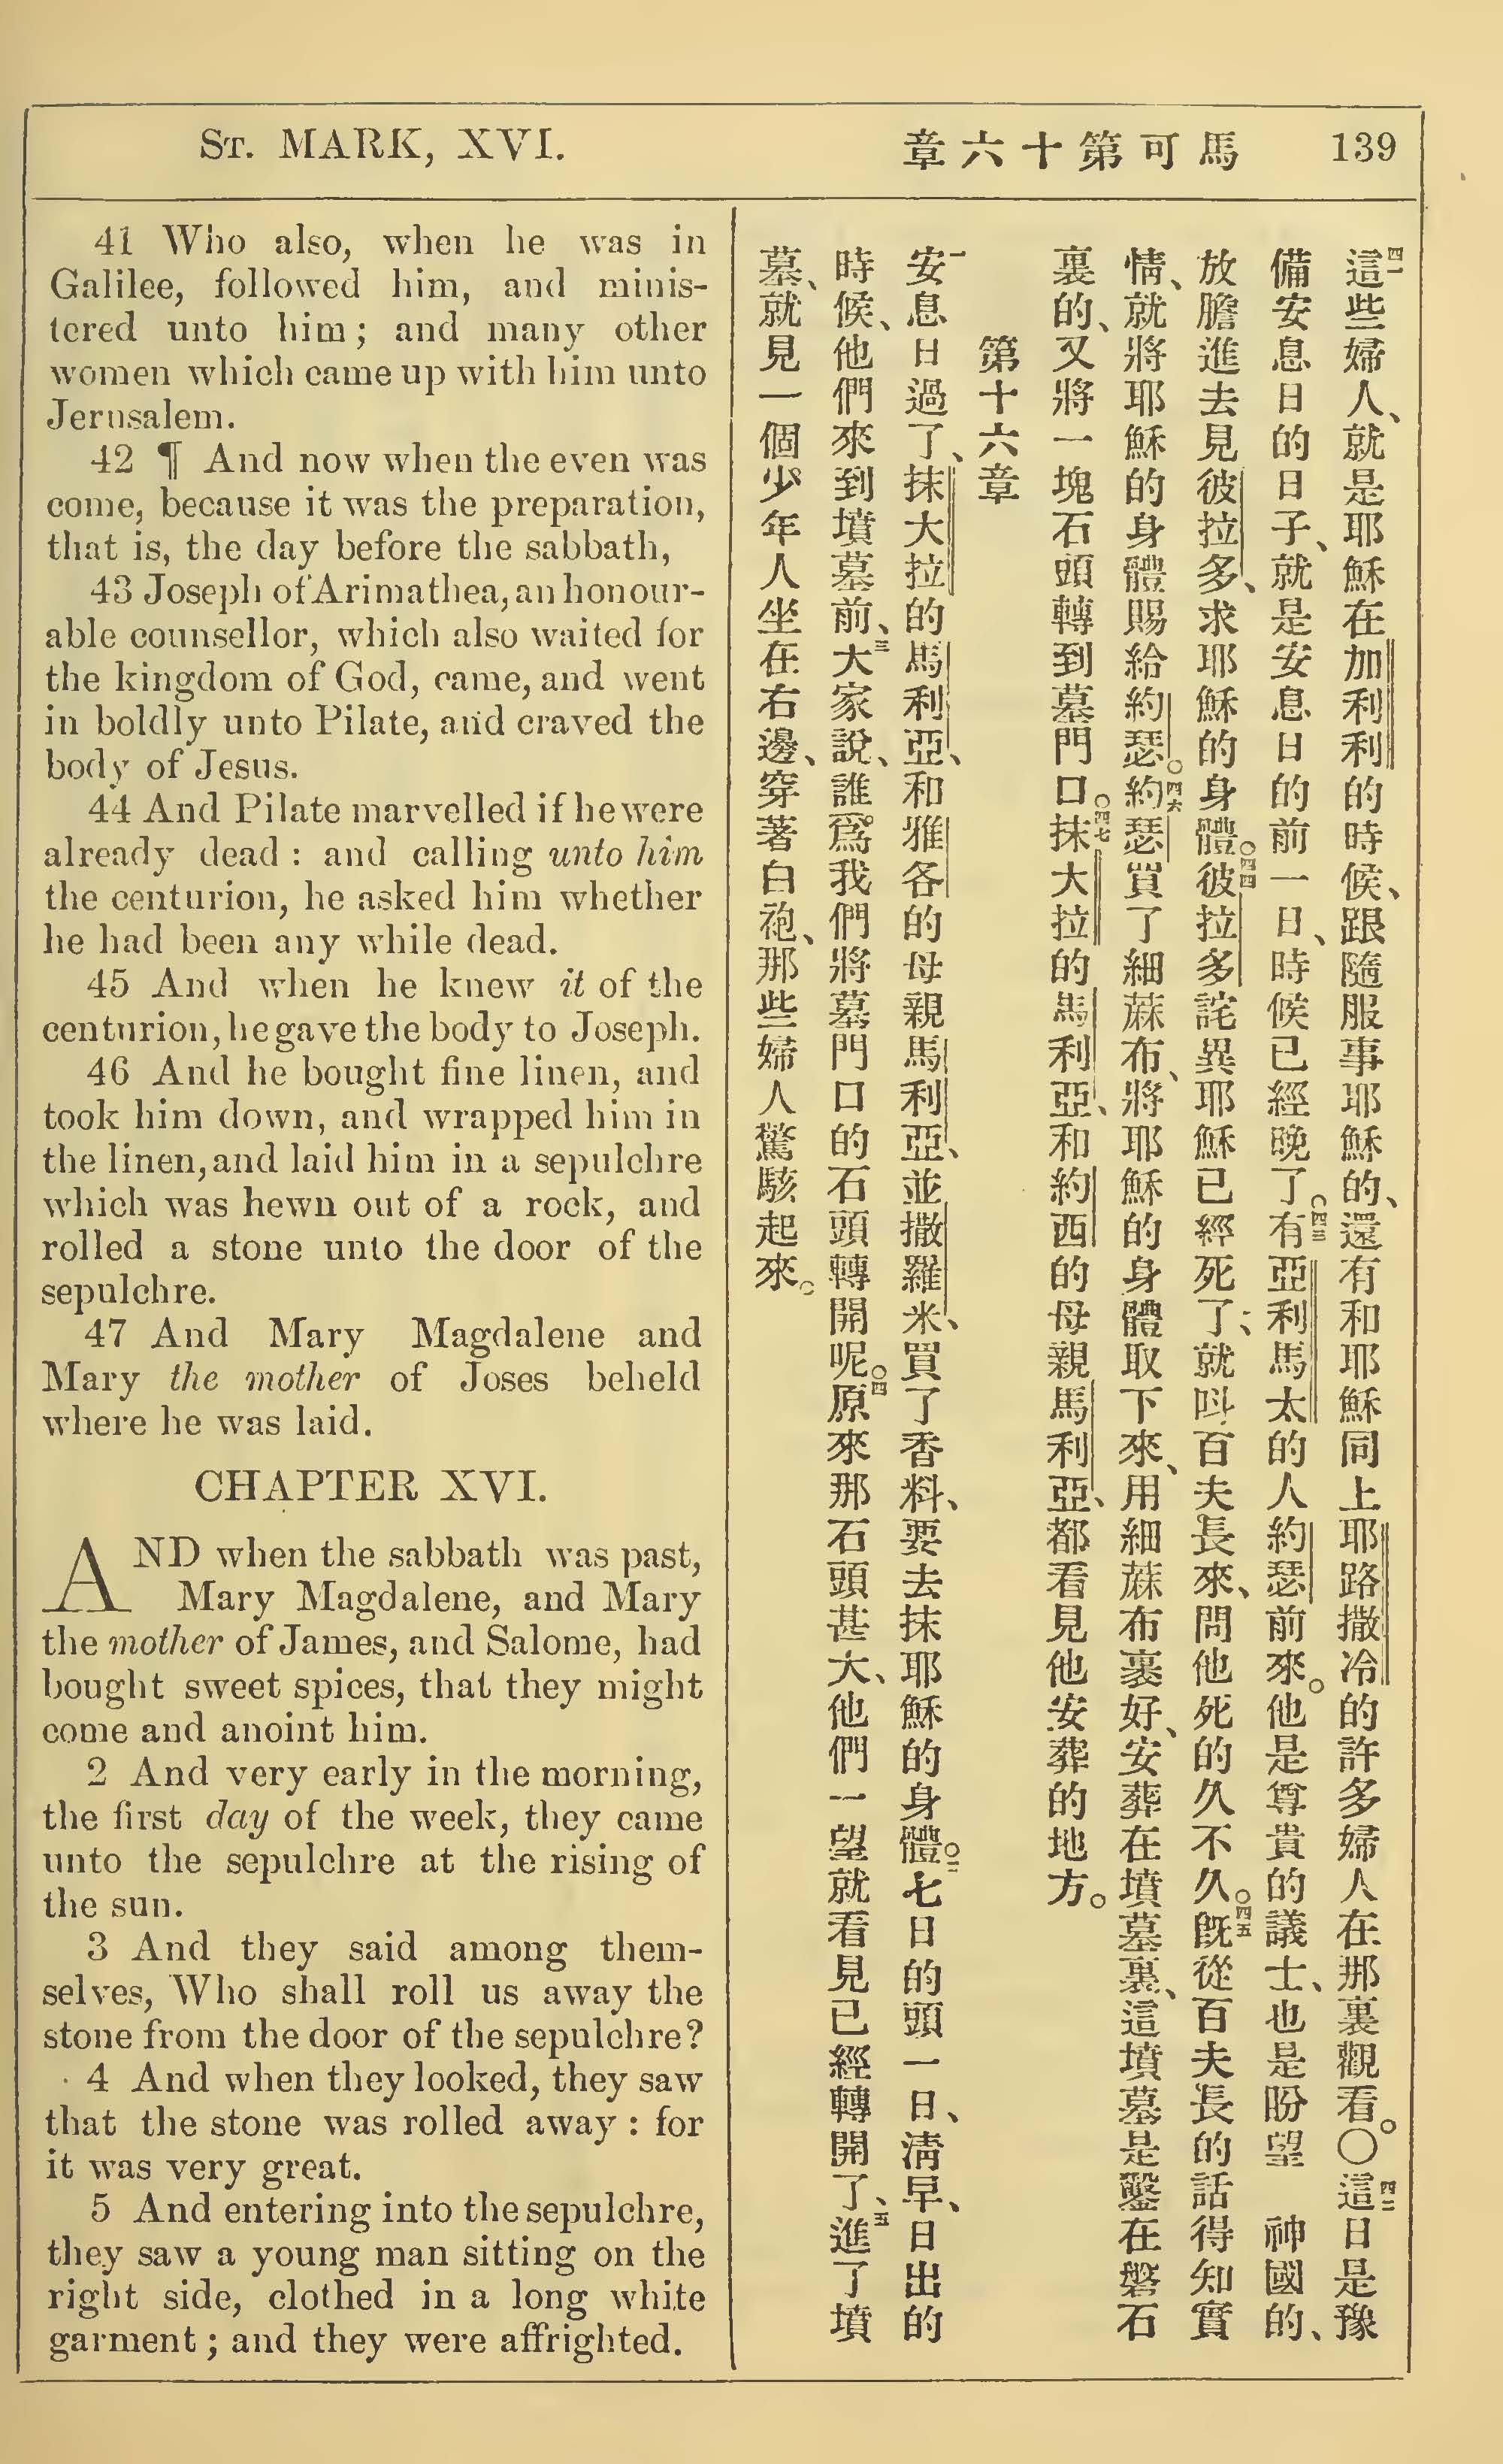 ST. MARK, XVI.
章六十第可馬
139
41 Who also, when he was in
Galilee, followed him, and minis-
tered unto him; and many other
women which came up with him unto
Jerusalem.
42 ¶ And now when the even was
come, because it was the preparation,
that is, the day before the sabbath,
43 Joseph of Arimathea, an honour-
able counsellor, which also waited for
the kingdom of God, came, and went
in boldly unto Pilate, and craved the
body of Jesus.
44 And Pilate marvelled if he were
already dead: and calling unto him
the centurion, he asked him whether
he had been any while dead.
45 And when he knew it of the
centurion, he gave the body to Joseph.
46 And he bought fine linen, and
took him down, and wrapped him in
the linen, and laid him in a sepulchre
which was hewn out of a rock, and
rolled a stone unto the door of the
sepulchre.
47 And Mary Magdalene and
Mary the mother of Joses beheld
where he was laid.
CHAPTER XVI.
AND when the sabbath was past,
Mary Magdalene, and Mary
the mother of James, and Salome, had
bought sweet spices, that they might
come and anoint him.
2 And very early in the morning,
the first day of the week, they came
unto the sepulchre at the rising of
the sun.
3 And they said among them-
selves, Who shall roll us away the
stone from the door of the sepulchre?
4 And when they looked, they saw
that the stone was rolled away: for
it was very great.
5 And entering into the sepulchre,
they saw a young man sitting on the
right side, clothed in a long white
garment; and they were affrighted.
四一這些婦人、就是耶穌在加利利的時候、跟隨服事耶穌的、還有和耶穌同上耶路撒冷的許多婦人在那裏觀看。〇四二這日是豫
備安息日的日子、就是安息日的前一日、時候已經晚了。四三有亞利馬太的人約瑟前來。他是尊貴的議士、也是盼望　神國的、
放膽進去見彼拉多、求耶穌的身體。四四彼拉多詫異耶穌已經死了;就呌百夫長來、問他死的久不久。四五旣從百夫長的話得知實
情、就將耶穌的身體賜給約瑟。四六約瑟買了細蔴布、將耶穌的身體取下來、用細蔴布裹好、安葬在墳墓裏、這墳墓是鑿在磐石
裏的、又將一塊石頭轉到墓門口。四七抹大拉的馬利亞、和約西的母親馬利亞、都看見他安葬的地方。
第十六章
一安息日過了、抹大拉的馬利亞、和雅各的母親馬利亞、並撒羅米、買了香料、要去抹耶穌的身體。二七日的頭一日、淸早、日出的
時候、他們來到墳墓前、三大家說、誰爲我們將墓門口的石頭轉開呢。四原來那石頭甚大、他們一望就看見已經轉開了、五進了墳
墓、就見一個少年人坐在右邊、穿著白袍、那些婦人驚駭起來。